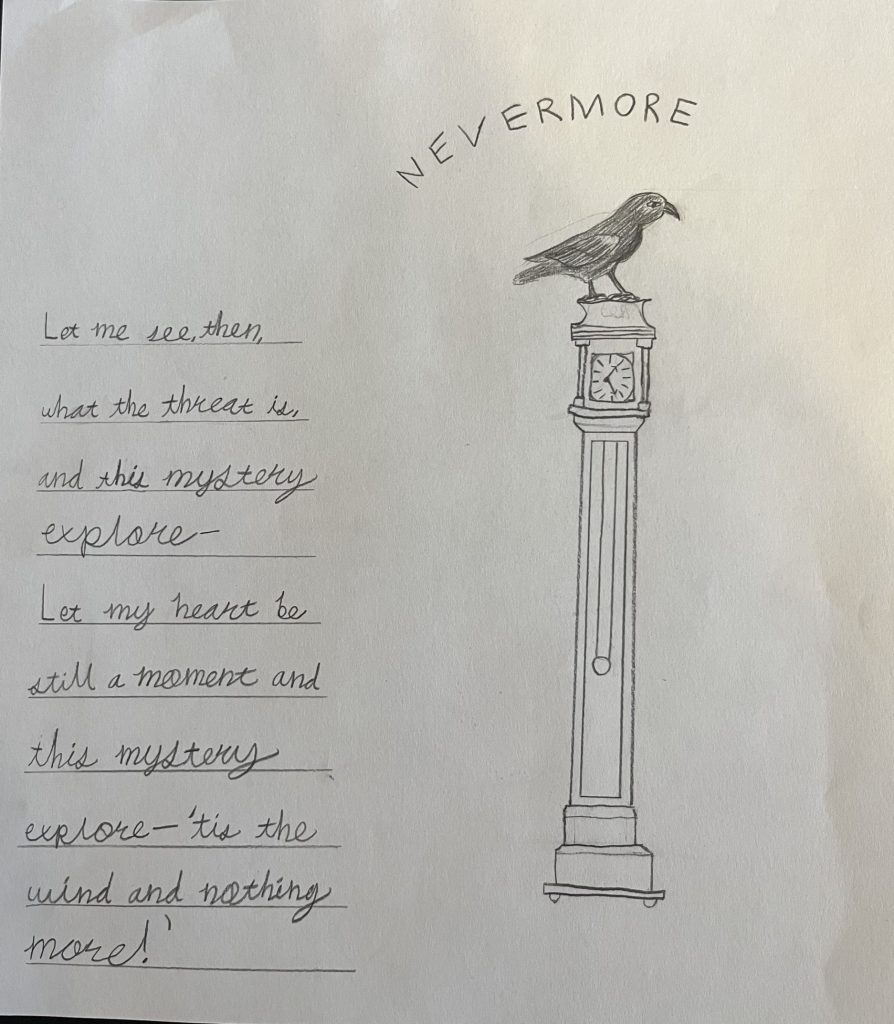 NEVERMORE
Let me see, then,
what the threat is,
and this mystery
explore-
Let my heart be
still a moment and
this mystery
explore-'tis the
wind and nothing
more!'